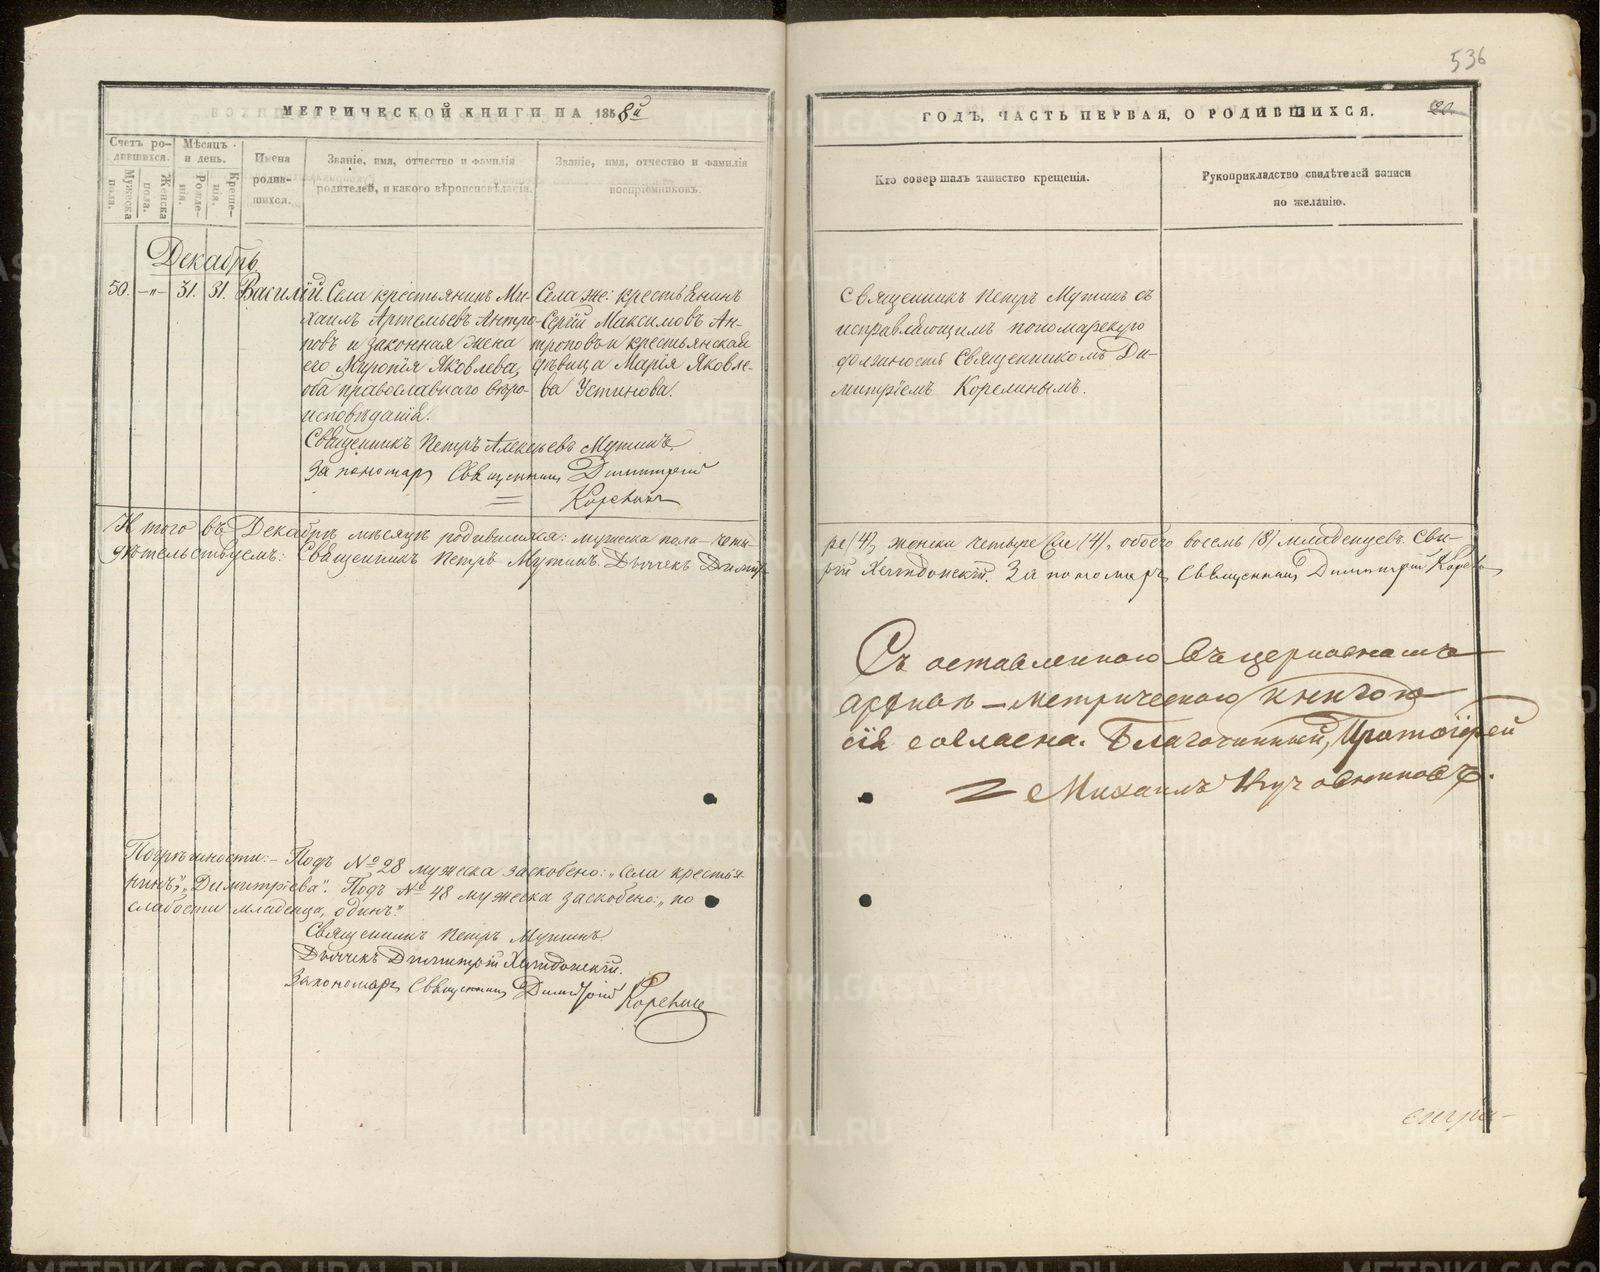 536
МЕТРИЧЕСКОЙ КНИГИ НА 1858й
Счетъ родившихся.
Мужеска пола.
Женска пола.
Мѣсяцъ и день.
Рожденія.
Крещенія.
Имена родившихся.
Званіе, имя, отчество и фамилія
родителей, и какого вѣроисповѣданія.
Званіе, имя, отчество и фамилія
воспріемниковъ.
Декабрь
50. -„- 31. 31. Василій.
Села крестьянинъ Ми-
хаилъ Артемьевъ Антро-
повъ и законная жена
его Миропія Яковлева,
оба православнаго вѣро-
исповѣданія.
Села же: крестьянинъ
Сергій Максимовъ Ан-
троповъ и крестьянская
дѣвица Марія Яковле-
ва Устинова.
Священникъ Петръ Алексѣевъ Мутинъ.
За пономаря Священникъ Димитрій
Корелинъ
Итого въ Декабрѣ мѣсяцѣ родившихся: мужеска пола – четы-
дѣтельствуемъ: Священникъ Петръ Мутинъ. Дьячекъ Димит-
Погрѣшности: – Подъ № 28 мужеска заскоблено: „Села крестья-
нинъ“, „Димитріева“. Подъ № 48 мужеска заскоблено: „по
слабости младенца, одинъ“.
Священникъ Петръ Мутинъ.
Дьячекъ Димитрій Хелидонскій.
За пономаря Священникъ Димитрій Корелинъ
ГОДЪ, ЧАСТЬ ПЕРВАЯ, О РОДИВШИХСЯ.
Кто совершалъ таинство крещенія.
Рукоприкладство свидѣтелей записи
по желанію.
Священникъ Петръ Мутинъ съ
исправляющимъ пономарскую
должность Священникомъ Ди-
митріемъ Корелинымъ.
ре /4/, женска четыре /4/, обоего восемь /8/ младенцевъ. Сви-
рій Хелидонскій. За пономаря Священникъ Димитрій Корелинъ
Съ оставленною въ церковномъ
архивѣ – метрическою книгою
сія согласна. Благочинный, Протоіерей
Михаилъ